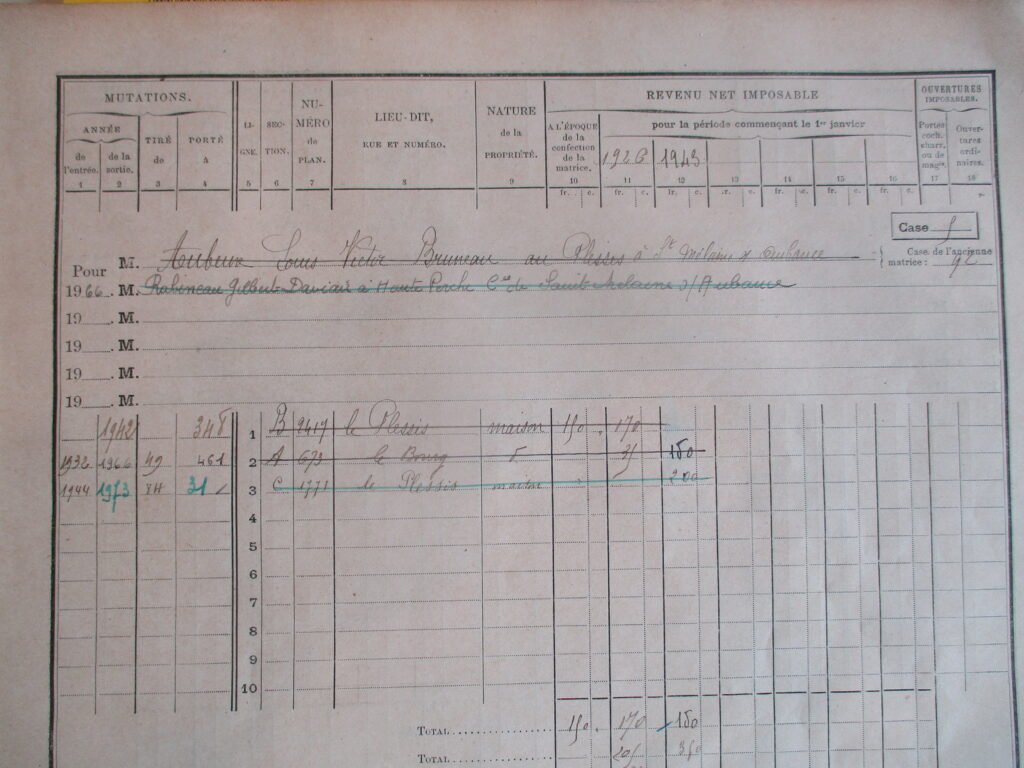 MUTATIONS.
ANNÉE
de l'entrée.
de la sortie.
TIRÉ de
PORTÉ à
LIGNE.
SECTION.
NUMÉRO de PLAN.
LIEU-DIT,
RUE ET NUMÉRO.
NATURE de la PROPRIÉTÉ.
REVENU NET IMPOSABLE
A L'ÉPOQUE de la confection de la matrice.
pour la période commençant le 1er janvier
1926 1943
OUVERTURES IMPOSABLES.
Portes coch. charr. ou de magas.
Ouvertures ordinaires.
1 2 3 4 5 6 7 8 9 10 11 12 13 14 15 16 17 18
fr. c. fr. c. fr. c. fr. c. fr. c. fr. c. fr. c.
Case
Case de l'ancienne matrice :
Pour M. Louis Victor Bruneau au Plessis à St Melaine s/ Aubance
1966 M. Rabineau Gilbert Daviau à Haute Perche Cne de Saint Melaine s/Aubance
19 M.
19 M.
19 M.
19 M.
1942 348 1 B 2417 le Plessis maison 150 . 170
1932 1966 49 461 2 A 673 le Bourg 150
1944 1973 31 3 C 1771 le Plessis maison 200
4
5
6
7
8
9
10
TOTAL 150 . 170 150
TOTAL 350